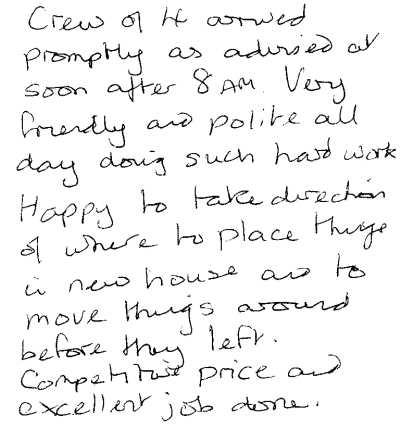 Crew of 4 arrived
promptly as advised at
soon after 8 AM. Very
friendly and polite all
day doing such hard work
Happy to take direction
of where to place things
in new house and to
move things around
before they left.
Competitive price and
excellent job done.